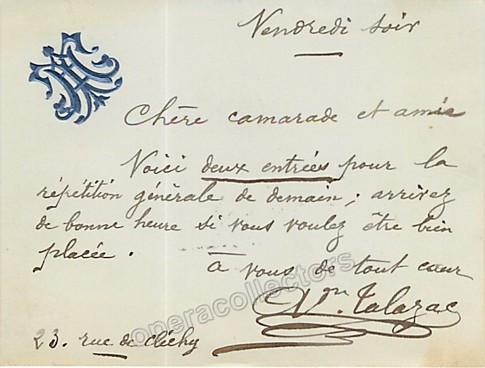 Vendredi soir
Chère camarade et amie
Voici deux entrées pour la
répétition générale de demain; arrivez
de bonne heure si vous voulez être bien
placée.
à vous de tout cœur
Vn. Talazac
23. rue de Clichy
operacollectors